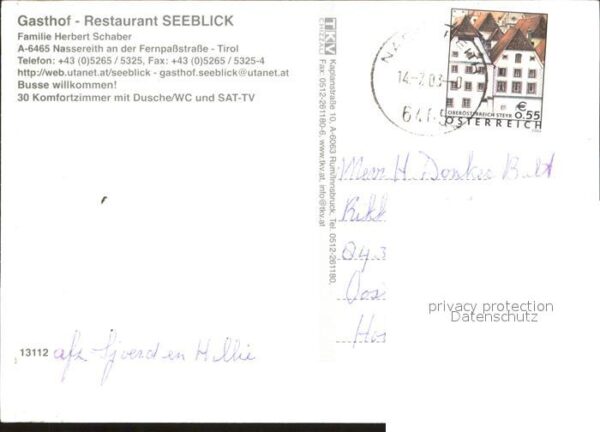 Gasthof - Restaurant SEEBLICK
Familie Herbert Schaber
A-6465 Nassereith an der Fernpaßstraße - Tirol
Telefon: +43 (0)5265 / 5325, Fax: +43 (0)5265 / 5325-4
http://web.utanet.at/seeblick - gasthof.seeblick@utanet.at
Busse willkommen!
30 Komfortzimmer mit Dusche/WC und SAT-TV
TKV
Kaplanstraße 10, A-6063 Rum/Innsbruck, Tel. 0512-261180,
Fax: 0512-261180-6, www.tkv.at, info@tkv.at
€ 0,55
OBERÖSTERREICH STEYR
ÖSTERREICH
H Donker
privacy protection
Datenschutz
13112
afz Sjoerd en